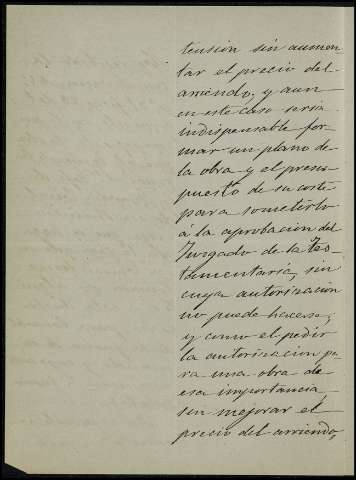 tension sin aumen-
tar el precio del
arriendo, y aun
en este caso seria
indispensable for-
mar un plano de
la obra y el presu-
puesto de su coste
para someterlo
á la aprobacion del
Juzgado de la Tes-
tamentaria, sin
cuya autorizacion
no puede hacerse;
y como el pedir
la autorizacion pa-
ra una obra de
esa importancia,
sin mejorar el
precio del arriendo,